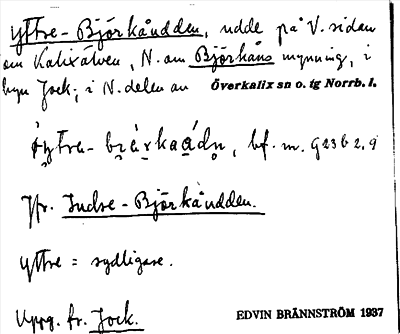 Yttre-Björkåudden, udde på V. sidan
om Kalixälven, N. om Björkåns mynning, i
byn Jock; i N. delen av Överkalix sn o. tg Norrb. l.
bf. m. G23b 2,9
Jfr. Indre-Björkåudden.
Yttre = sydligare.
Uppg. fr. Jock.
EDVIN BRÄNNSTRÖM 1937